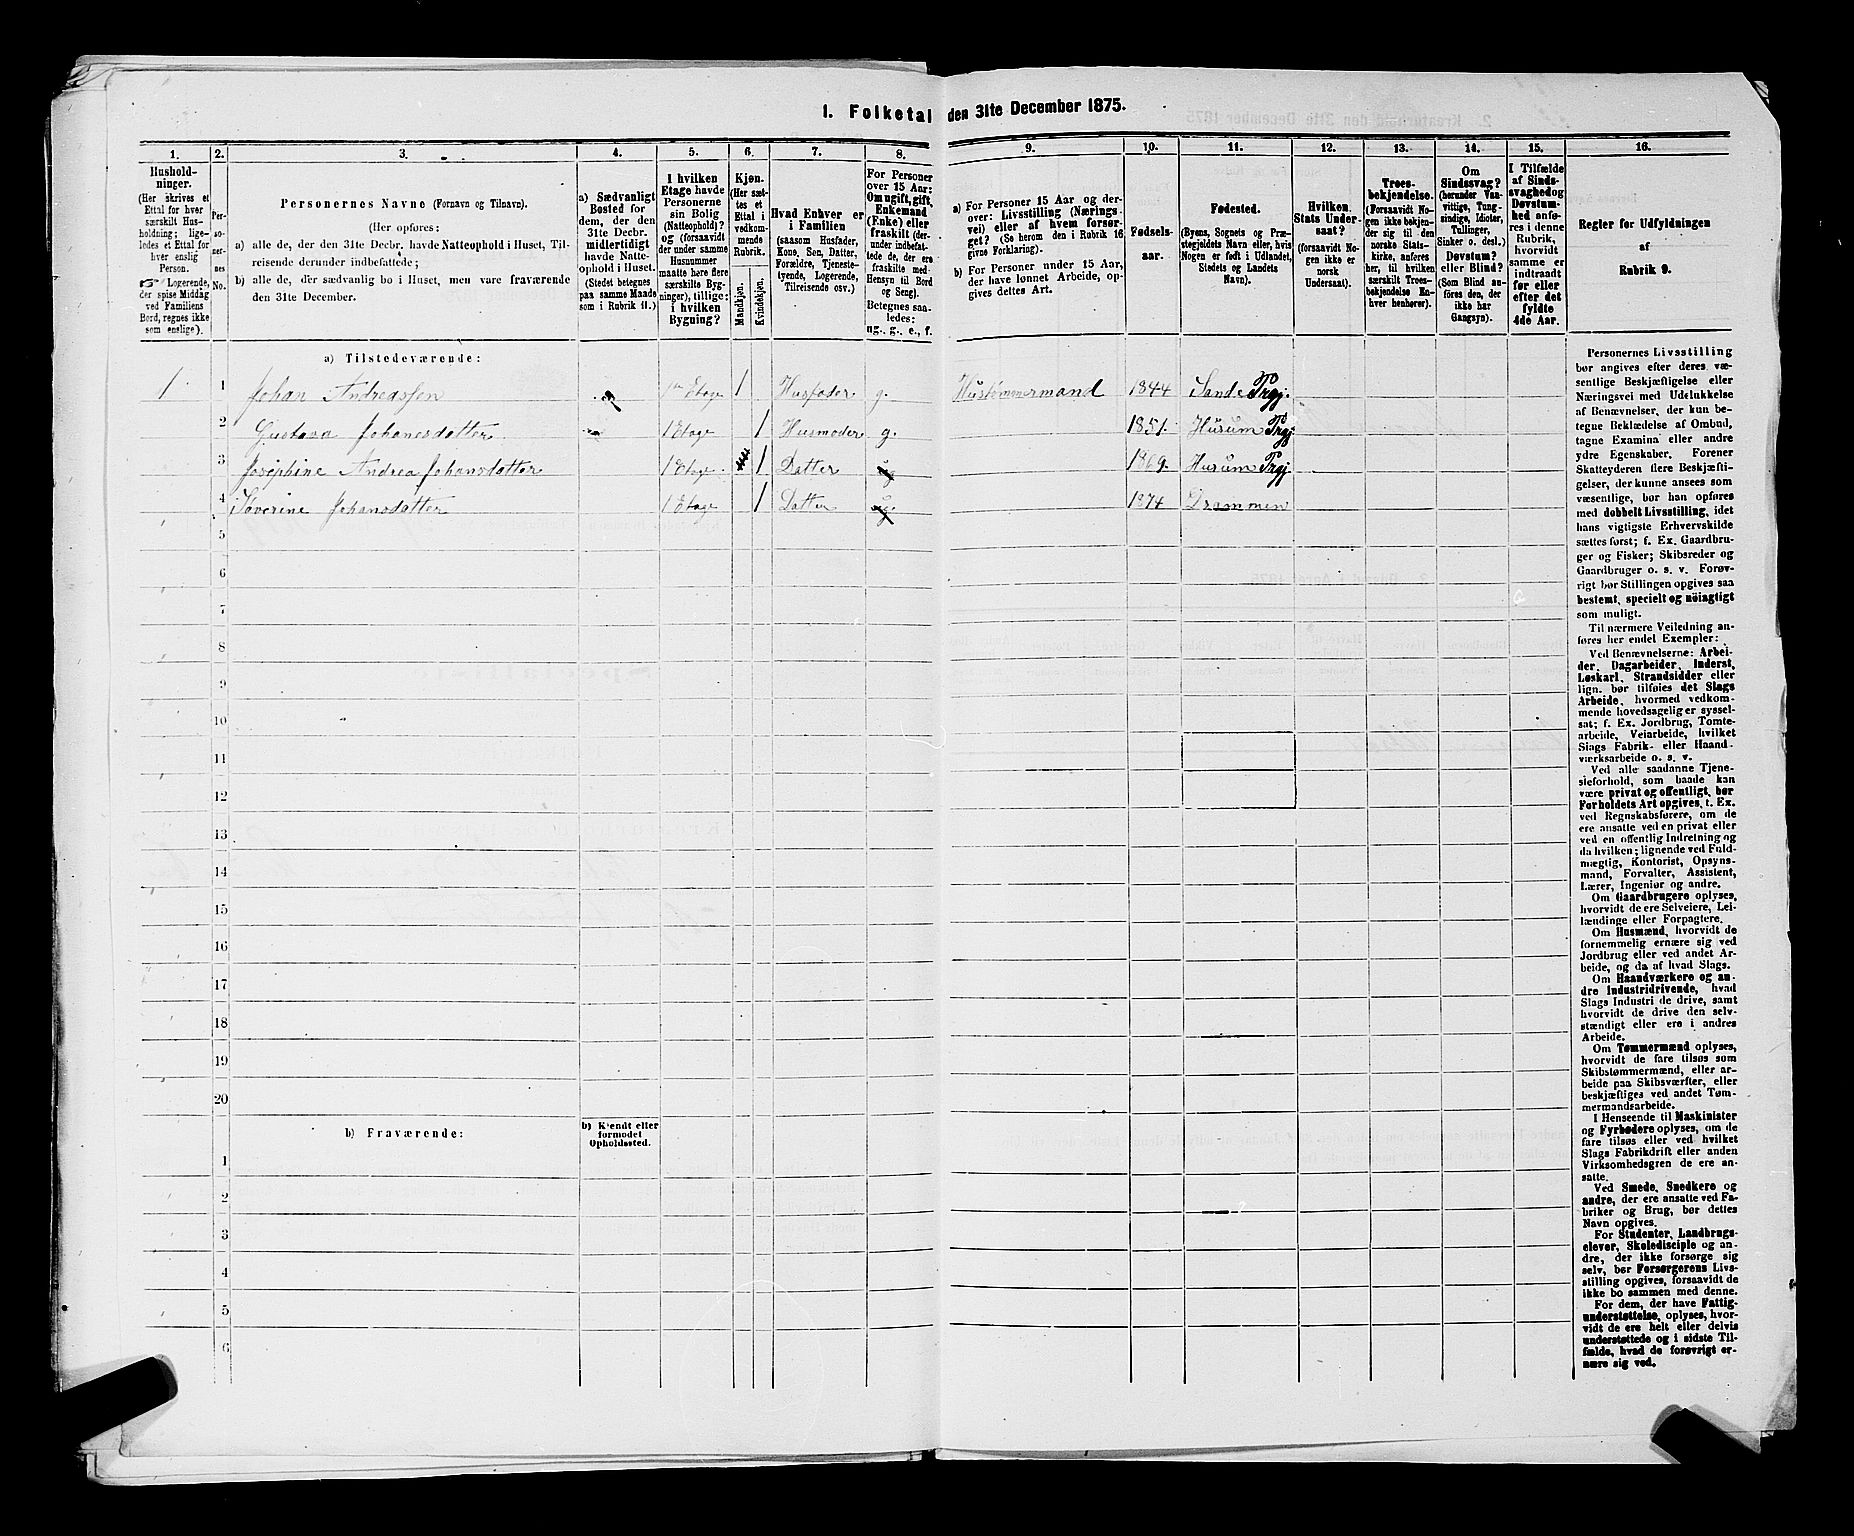 1. Folketal den 31te December 1875.
1.
2.
3.
4.
5.
6.
7.
8.
9.
10.
11.
12.
13.
14.
15.
16.
Hushold-
ninger.
(Her skrives et
Ettal for hver
særskilt Hus-
holdning; lige-
ledes et Ettal for
hver enslig
Person.
☞ Logerende,
der spise Middag
ved Familiens
Bord, regnes ikke
som enslige).
Per-
so-
ner-
nes
No.
Personernes Navne (Fornavn og Tilnavn).
(Her opføres:
a) alle de, der den 31te Decbr. havde Natteophold i Huset, Til-
reisende derunder indbefattede;
b) alle de, der sædvanlig bo i Huset, men vare fraværende
den 31te December.
a) Sædvanligt
Bosted for
dem, der den
31te Decbr.
midlertidigt
havde Natte-
ophold i Huset.
(Stedet betegnes
paa samme Maade
som i Rubrik 11.)
I hvilken
Etage havde
Personerne
sin Bolig
(Natteophold)?
og (forsaavidt
der under samme
Husnummer
maatte høre flere
særskilte Byg-
ninger), tillige:
i hvilken
Bygning?
Kjøn.
(Her sæt-
tes et
Ettal i
vedkom-
mende
Rubrik.
Mandkjøn.
Kvindekjøn.
Hvad Enhver er
i Familien
(saasom Husfader,
Kone, Søn, Datter,
Forældre, Tjeneste-
tyende, Logerende,
Tilreisende osv.)
For Personer
over 15 Aar:
Om ugift, gift,
Enkemand
(Enke) eller
fraskilt (der-
under indbefat-
tede de, der ere
fraskilte med
Hensyn til Bord
og Seng).
Betegnes saa-
ledes:
ug., g., e., f.
a) For Personer 15 Aar og der-
over: Livsstilling (Nærings-
vei) eller af hvem forsør-
get? (Se herom den i Rubrik 16
givne Forklaring).
b) For Personer under 15 Aar,
der have lønnet Arbeide, op-
gives dettes Art.
Fødsels-
aar.
Fødested.
(Byens, Sognets og Præ-
stegjeldets Navn eller, hvis
Nogen er født i Udlandet,
Stedets og Landets
Navn).
Hvilken
Stats Under-
saat?
(forsaavidt No-
gen ikke er
norsk
Undersaat).
Troes-
bekjendelse.
(Forsaavidt No-
gen ikke bekjen-
der sig til den
norske Stats-
kirke, anføres
her, til hvilken
særskilt Troes-
bekjendelse En-
hver henhører).
Om
Sindssvag?
(herunder Van-
vittige, Tung-
sindige, Idioter,
Tullinger,
Sinker o. desl.)
Døvstum?
eller Blind?
(Som Blind an-
føres den, der
ikke har
Gangsyn).
I Tilfælde
af Sinds-
svaghed og
Døvstum-
hed anfø-
res i denne
Rubrik,
hvorvidt
samme er
indtraadt
før eller
efter det
fyldte
4de Aar.
Regler for Udfyldningen
af
Rubrik 9.
a) Tilstedeværende:
1 1 Johan Andreassen 1ste Etage 1 Husfader g. Hustømmermand 1844 Sande Prgj.
2 Gustava Johanesdatter 1 Etage 1 Husmoder g. 1851. Hurum Prgj
3 Josephine Andrea Johansdatter 1 Etage 1 Datter ug 1869. Hurum Prgj.
4 Severine Johansdatter 1 Etage 1 Datter ug. 1874 Drammen
5
6
7
8
9
10
11
12
13
14
15
16
17
18
19
20
b) Fraværende:
b) Kjendt eller
formodet
Opholdssted.
1
2
3
4
5
6
Personernes Livsstilling
bør angives efter deres væ-
sentlige Beskjæftigelse eller
Næringsvei med Udelukkelse
af Benævnelser, der kun be-
tegne Beklædelse af Ombud,
tagne Examina eller andre
ydre Egenskaber. Forener
Skatteyderen flere Beskjæfti-
gelser, der kunne ansees som
væsentlige, bør han opføres
med dobbelt Livsstilling, idet
hans vigtigste Erhvervskilde
sættes først; f. Ex. Gaardbru-
ger og Fisker; Skibsreder og
Gaardbruger o. s. v. Forøv-
rigt bør Stillingen opgives saa
bestemt, specielt og nøiagtigt
som muligt.
Til nærmere Veiledning an-
føres her endel Exempler:
Ved Benævnelserne: Arbei-
der, Dagarbeider, Inderst,
Løskarl, Strandsidder eller
lign. bør tilføies det Slags
Arbeide, hvormed vedkom-
mende hovedsagelig er syssel-
sat; f. Ex. Jordbrug, Tomte-
arbeide, Veiarbeide, hvilket
Slags Fabrik- eller Haand-
værksarbeide o. s. v.
Ved alle saadanne Tjene-
sieforhold, som baade kan
være privat og offentligt, bør
Forholdets Art opgives, t. Ex.
ved Regnskabsførere, om de
ere ansatte ved en privat eller
ved en offentlig Indretning og
da hvilken; lignende ved Fuld-
mægtig, Kontorist, Opsyns-
mand, Forvalter, Assistent,
Lærer, Ingeniør og andre.
Om Gaardbrugere oplyses,
hvorvidt de ere Selveiere, Lei-
lændinge eller Forpagtere.
Om Husmænd, hvorvidt de
fornemmelig ernære sig ved
Jordbrug eller ved andet Ar-
beide, og da af hvad Slags.
Om Haandværkere og an-
dre Industridrivende, hvad
Slags Industri de drive, samt
hvorvidt de drive den selv-
stændigt eller ere i andres
Arbeide.
Om Tømmermænd oplyses,
hvorvidt de fare tilsøs som
Skibstømmermænd, eller ar-
beide paa Skibsværfter, eller
beskjæftiges ved andet Tøm-
mermandsarbeide.
I Henseende til Maskinister
og Fyrbødere oplyses, om de
fare tilsøs eller ved hvilket
Slags Fabrikdrift eller anden
Virksomhedsgren de ere an-
satte.
Ved Smede, Snedkere og
andre, der ere ansatte ved Fa-
briker og Brug, bør dettes
Navn opgives.
For Studenter, Landbrugs-
elever, Skoledisciple og an-
dre, der ikke forsørge sig
selv, bør Forsørgerens Livs-
stilling opgives, forsaavidt de
ikke bo sammen med denne.
For dem, der have Fattig-
understøttelse, oplyses, hvor-
vidt de ere helt eller delvis
understøttede og i sidste Til-
fælde, hvad de forøvrigt er-
nære sig ved.